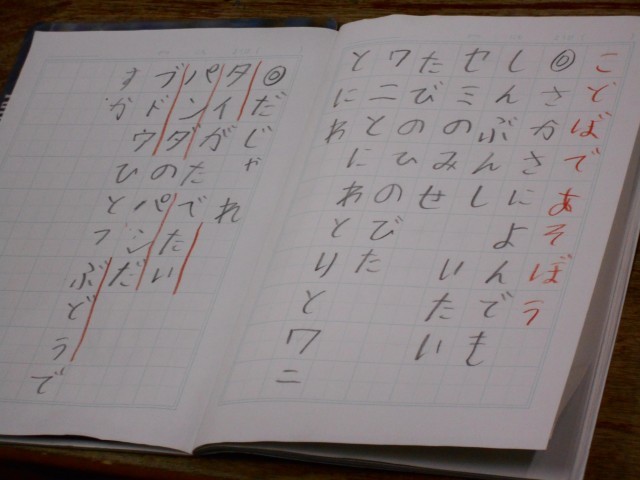 ことばであそぼう
◎さかさによんでも
しんぶんし　いたい
セミのみせ
たびのひのびた
ワニとにわとりとワニ
とにわ
◎だじゃれ
タイがたでたい
パンダのパンだ
ブドウひとつぶどうで
すか